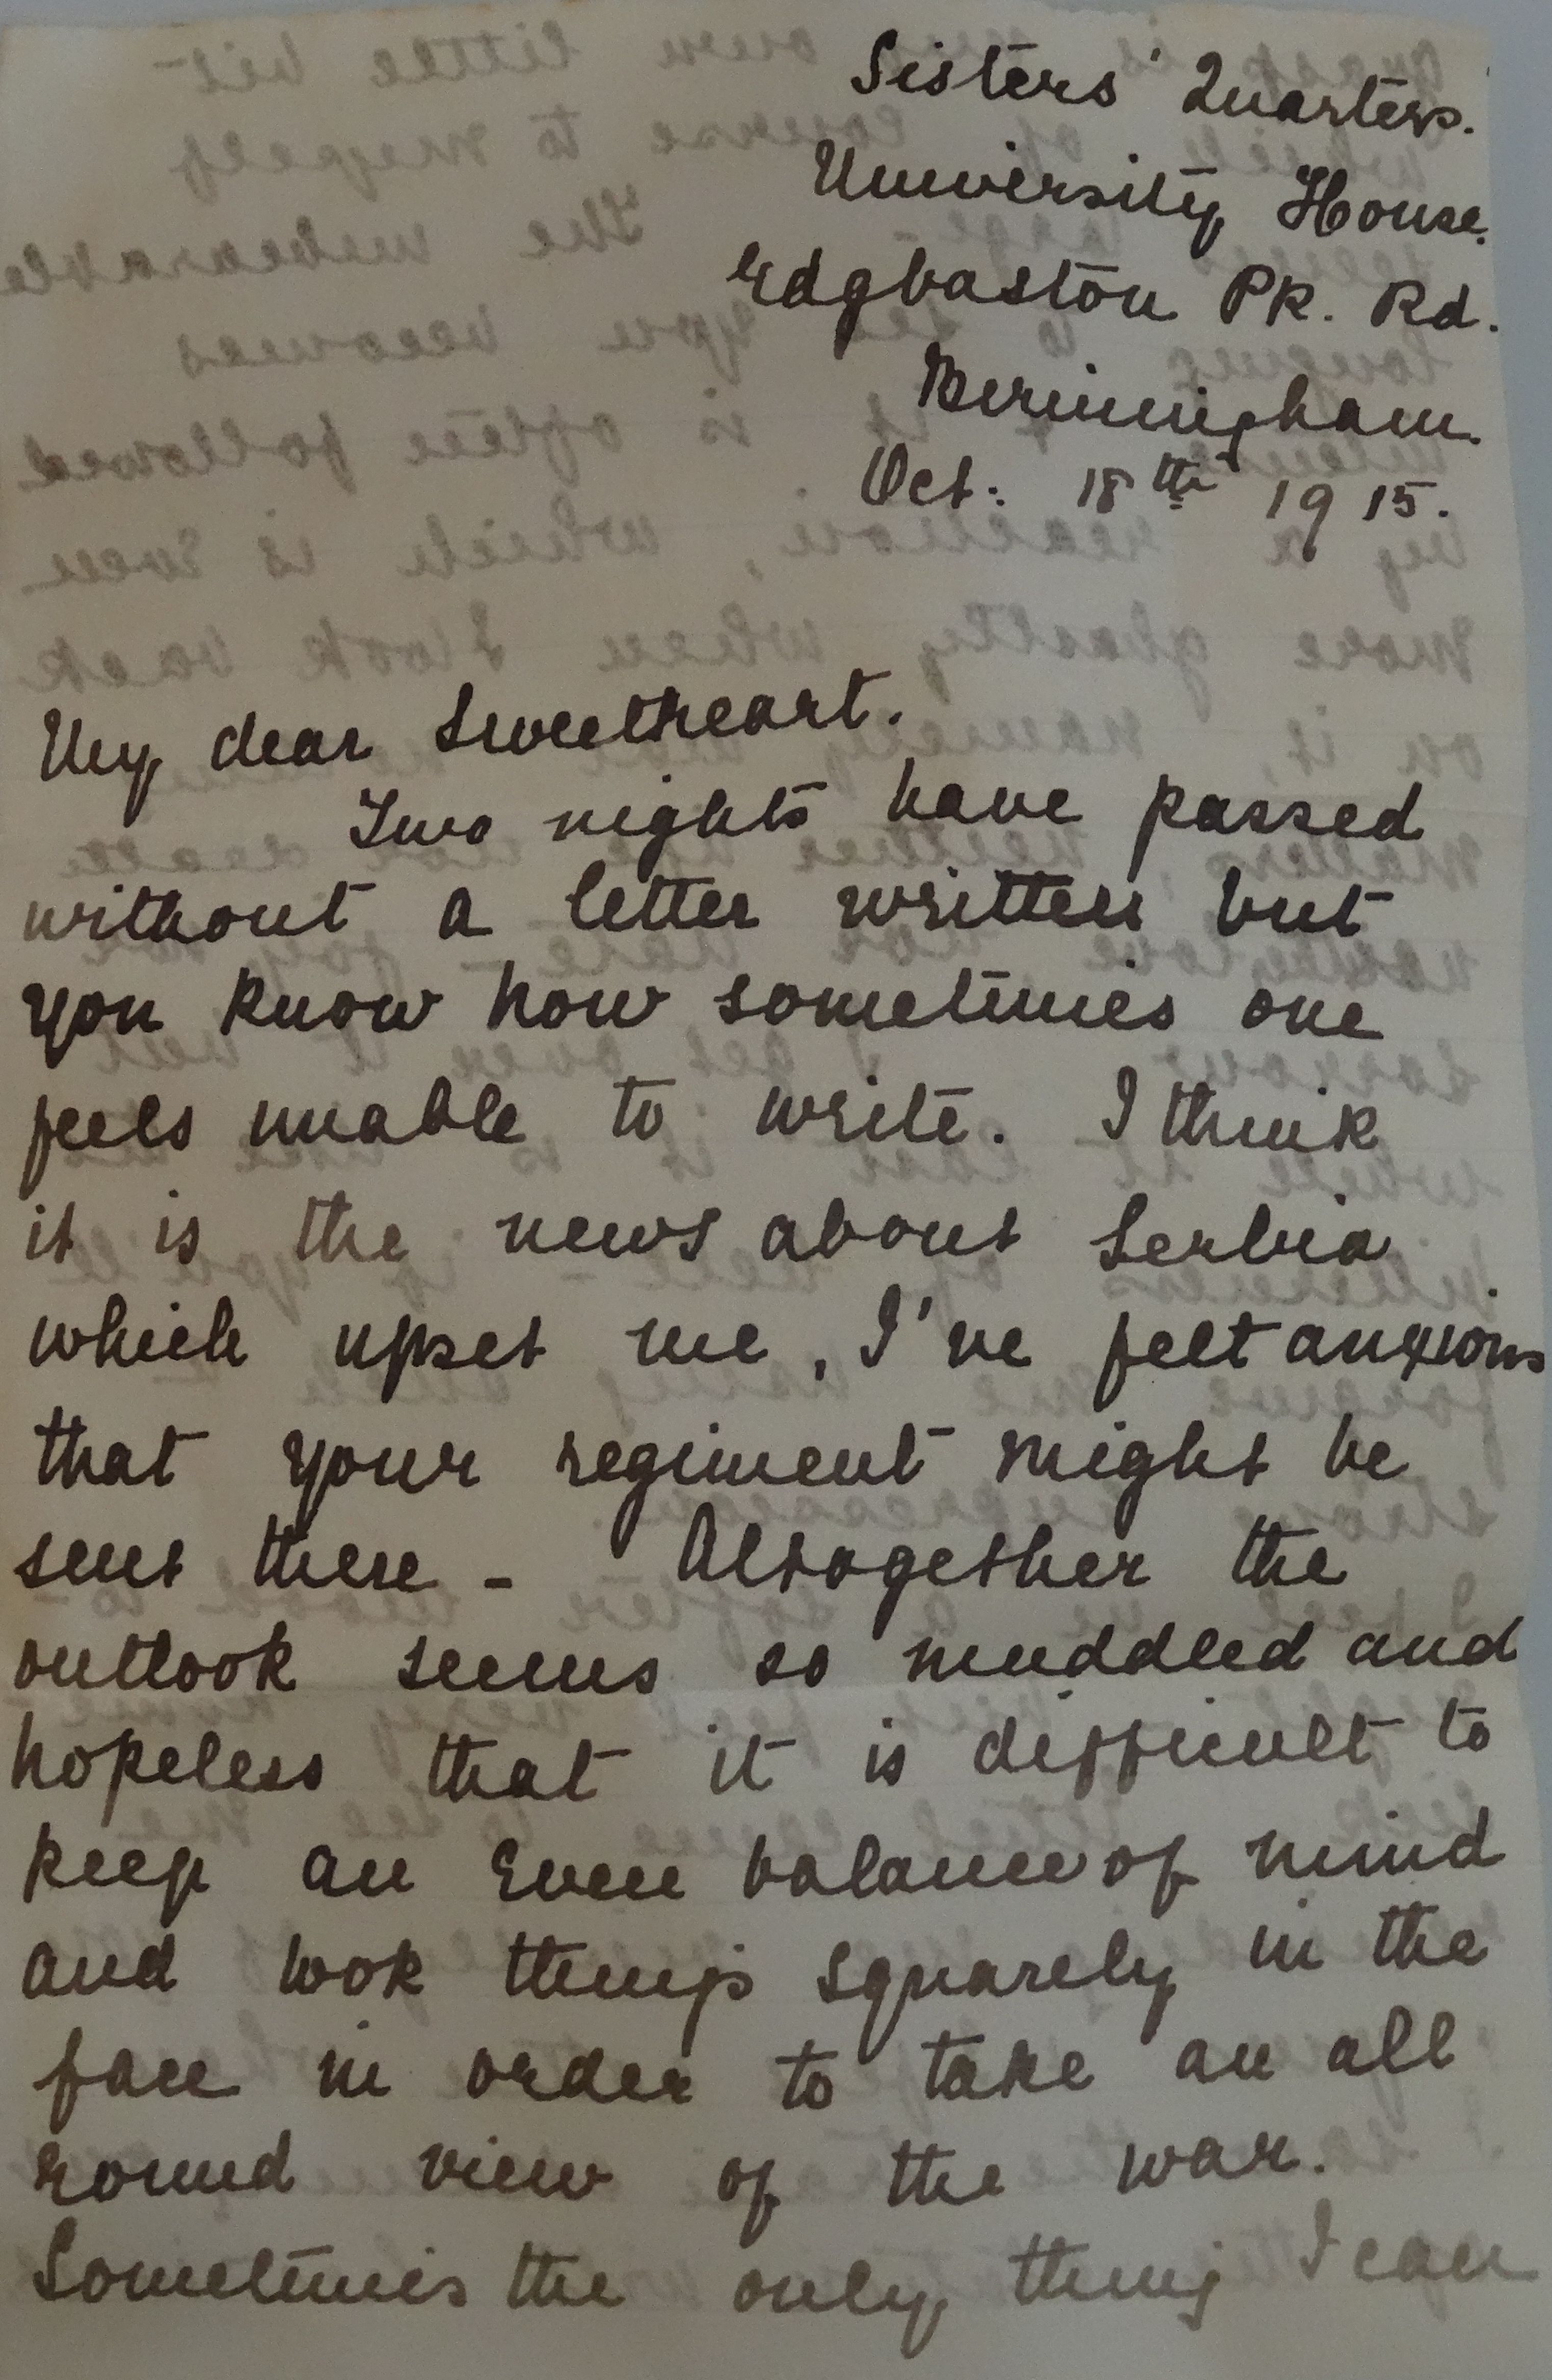 Sisters' Quarters.
University House.
Edgbaston Pk. Rd.
Birmingham.
Oct: 18th 1915.
My dear Sweetheart.
Two nights have passed
without a letter written but
you know how sometimes one
feels unable to write. I think
it is the news about Serbia
which upset me, I've felt anxious
that your regiment might be
sent there - Altogether the
outlook seems so muddled and
hopeless that it is difficult to
keep an even balance of mind
and look things squarely in the
face in order to take an all
round view of the war.
Sometimes the only thing I can